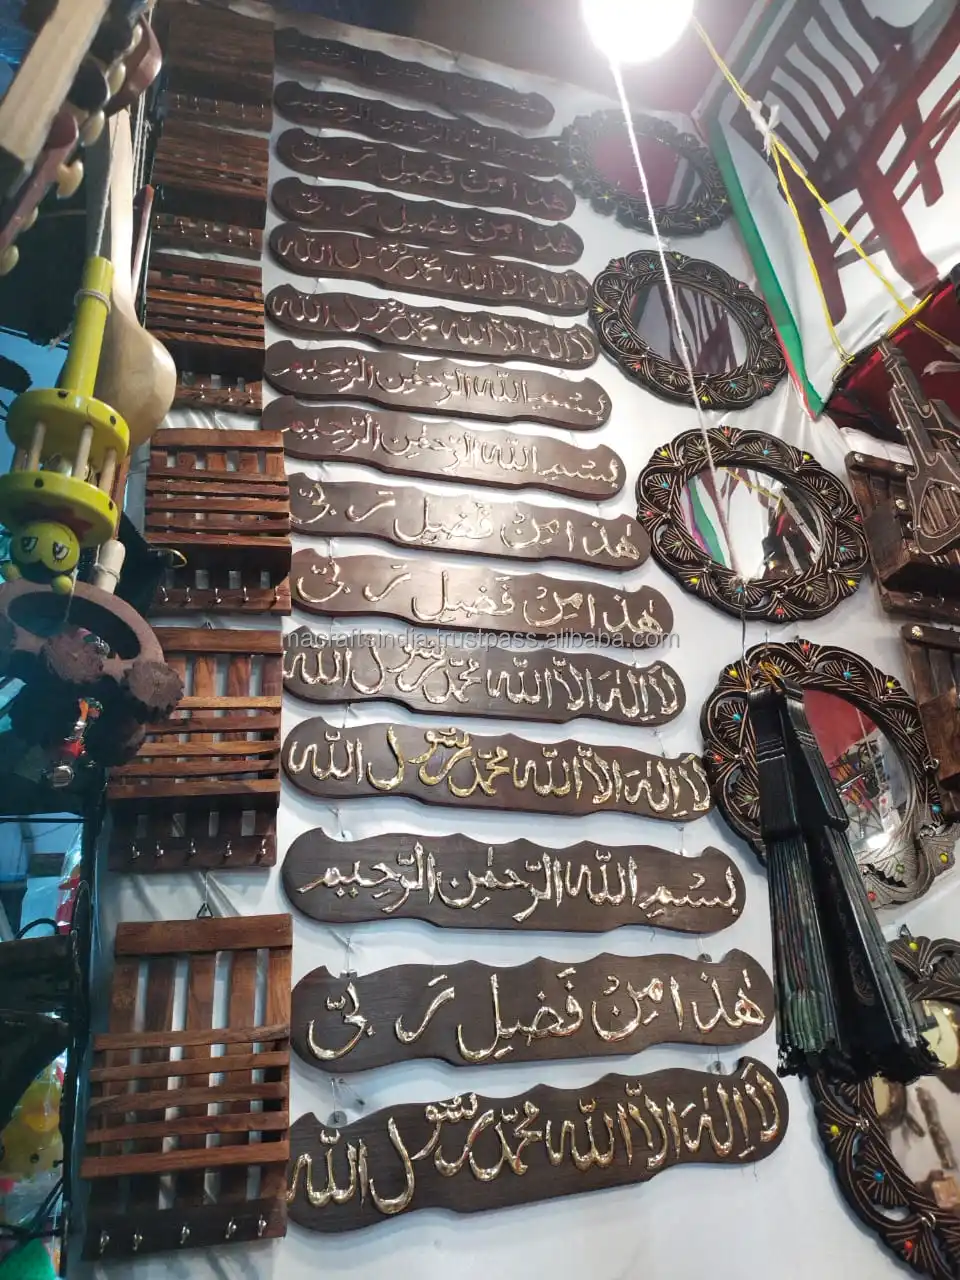 بسم الله الرحمن الرحيم
بِسْمِ اللّٰه الرّحمٰن الرّحِيم
هٰذا مِنْ فَضلِ رَبّى
هٰذا مِنْ فَضلِ رَبّى
لَا اِلٰهَ اِلاّ اللّٰه محمّد رسول اللّٰه
لَا اِلٰهَ اِلاّ اللّٰه محمّد رسول اللّٰه
بِسْمِ اللّٰه الرّحمٰن الرّحِيم
بِسْمِ اللّٰه الرّحمٰن الرّحِيم
هٰذا مِنْ فَضلِ رَبّى
هٰذا مِنْ فَضلِ رَبّى
masraftsindia.trustpass.alibaba.com
لَا اِلٰهَ اِلاّ اللّٰه محمّد رسول اللّٰه
لَا اِلٰهَ اِلاّ اللّٰه محمّد رسول اللّٰه
بِسْمِ اللّٰه الرّحمٰن الرّحِيم
هٰذا مِنْ فَضلِ رَبّى
لَا اِلٰهَ اِلاّ اللّٰه محمّد رسول اللّٰه